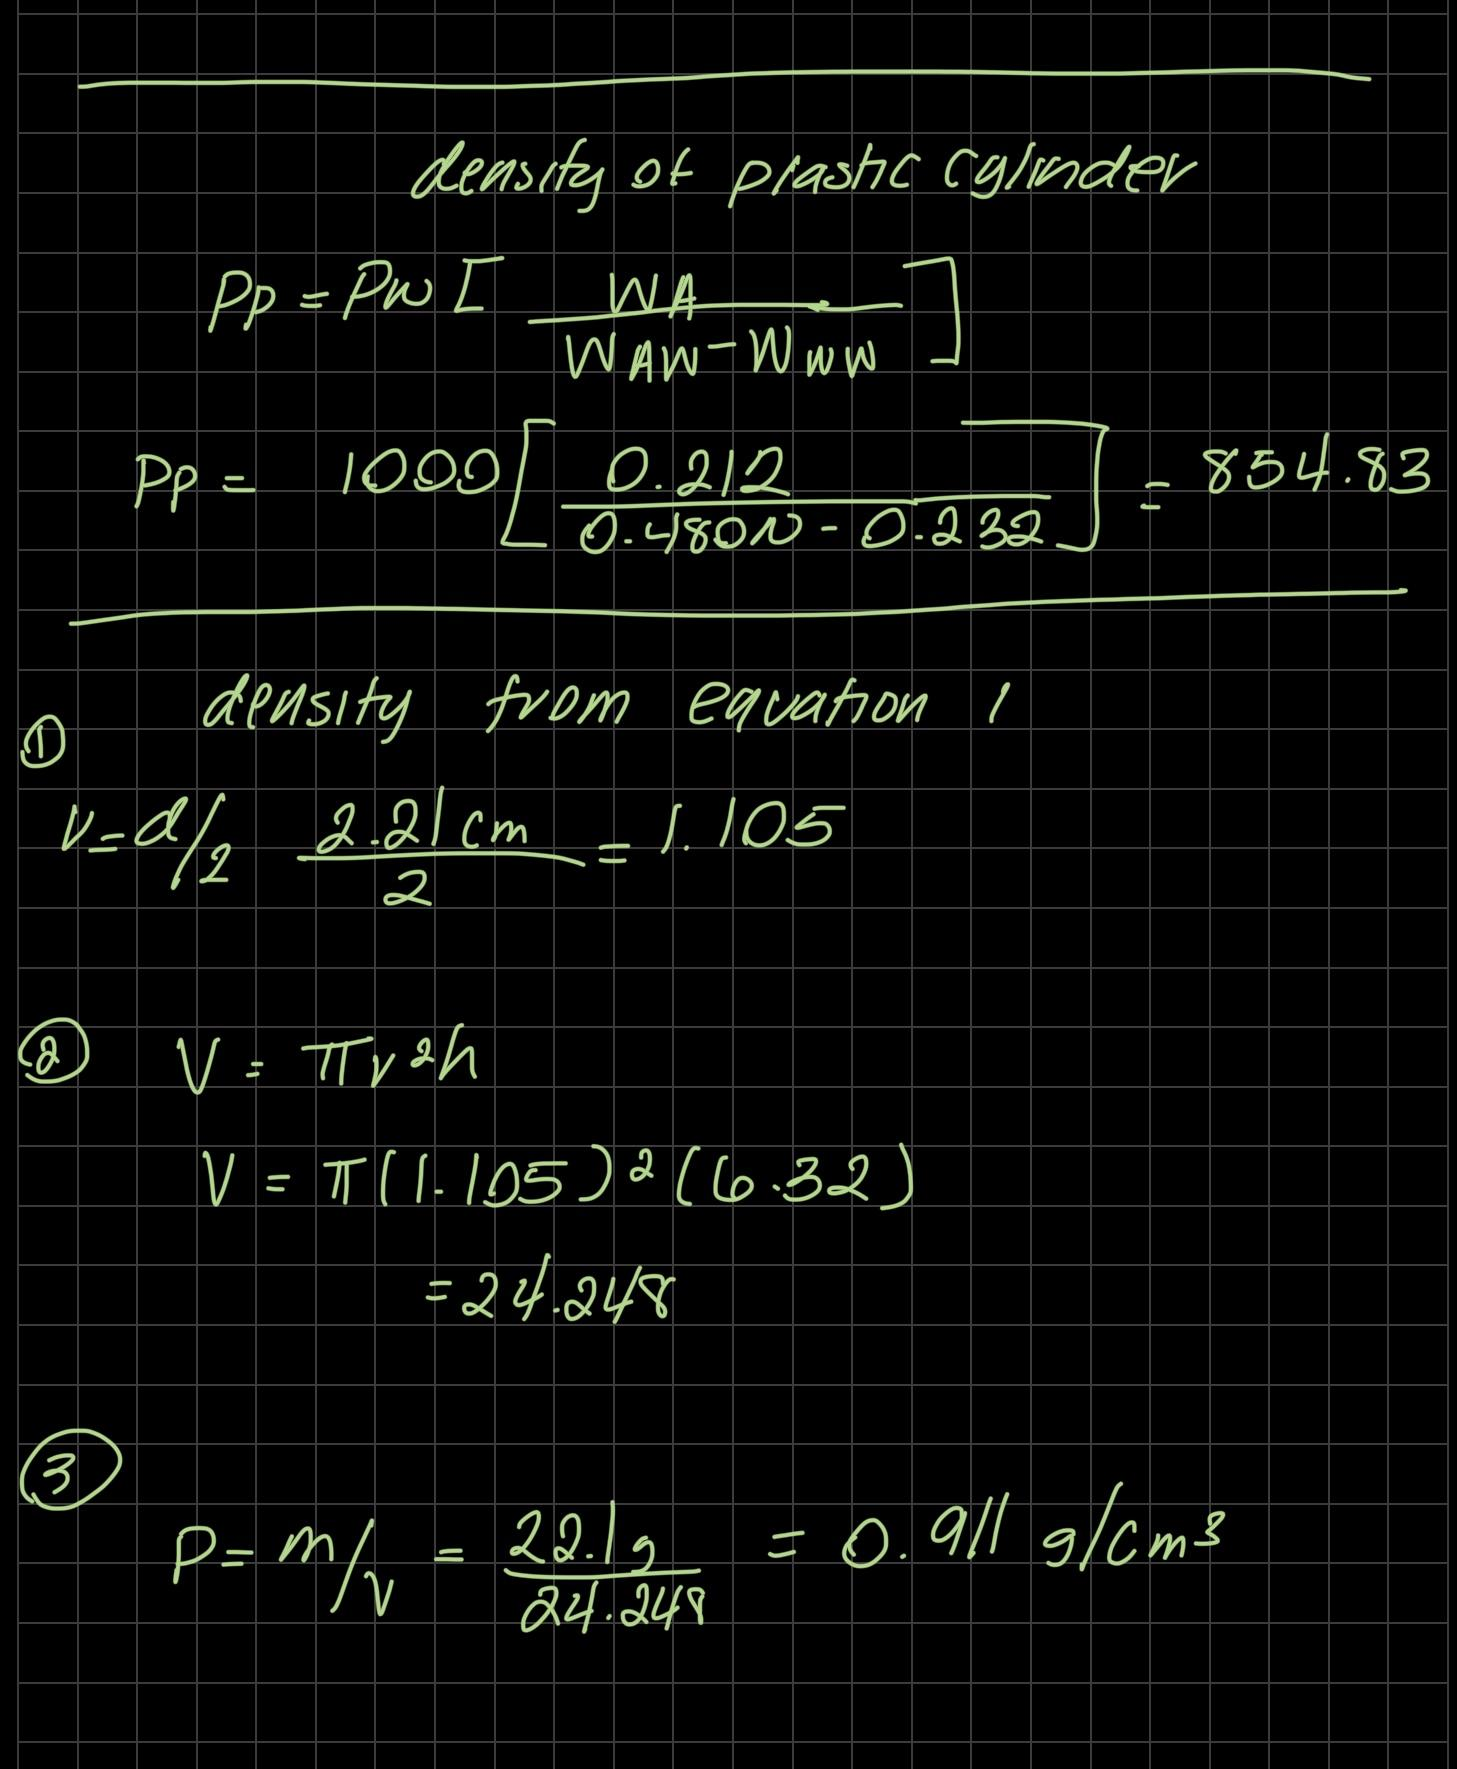 density of plastic cylinder
Pp = Pw [ WA / WAW - WWW ]
Pp = 1000 [ 0.212 / 0.480N - 0.232 ] = 854.83
density from equation 1
① r = d/2 2.21 cm / 2 = 1.105
② V = πr²h
V = π(1.105)²(6.32)
= 24.248
③ P = m/v = 22.1g / 24.248 = 0.911 g/cm³